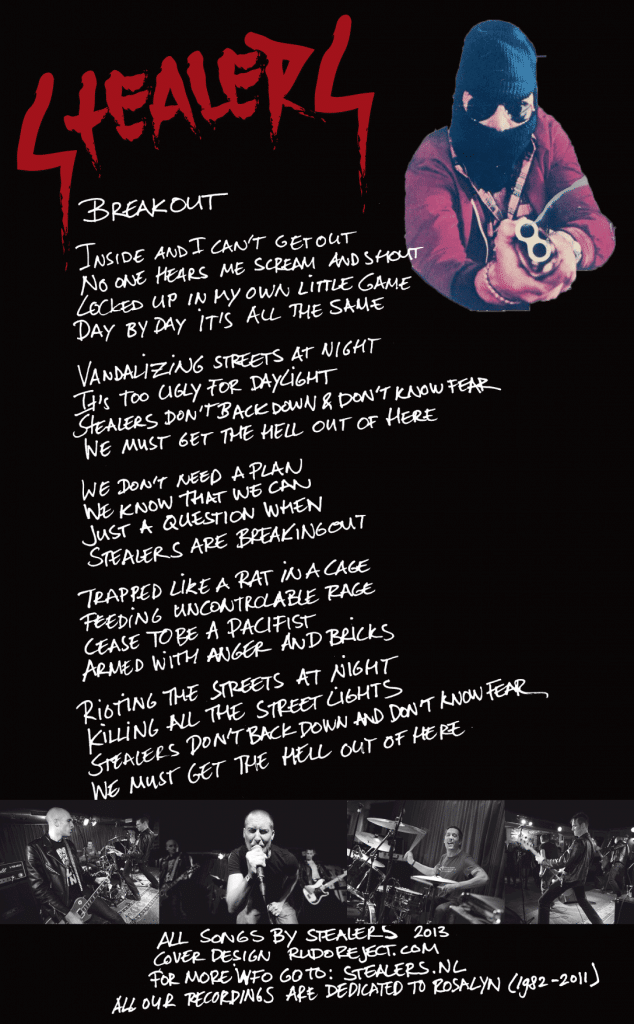 STEALERS
BREAKOUT
INSIDE AND I CAN'T GET OUT
NO ONE HEARS ME SCREAM AND SHOUT
LOCKED UP IN MY OWN LITTLE GAME
DAY BY DAY IT'S ALL THE SAME
VANDALIZING STREETS AT NIGHT
IT'S TOO UGLY FOR DAYLIGHT
STEALERS DON'T BACK DOWN & DON'T KNOW FEAR
WE MUST GET THE HELL OUT OF HERE
WE DON'T NEED A PLAN
WE KNOW THAT WE CAN
JUST A QUESTION WHEN
STEALERS ARE BREAKING OUT
TRAPPED LIKE A RAT IN A CAGE
FEEDING UNCONTROLABLE RAGE
CEASE TO BE A PACIFIST
ARMED WITH ANGER AND BRICKS
RIOTING THE STREETS AT NIGHT
KILLING ALL THE STREET LIGHTS
STEALERS DON'T BACK DOWN AND DON'T KNOW FEAR
WE MUST GET THE HELL OUT OF HERE
ALL SONGS BY STEALERS 2013
COVER DESIGN RUDOREJECT.COM
FOR MORE INFO GO TO: STEALERS.NL
ALL OUR RECORDINGS ARE DEDICATED TO ROSALYN (1982-2011)